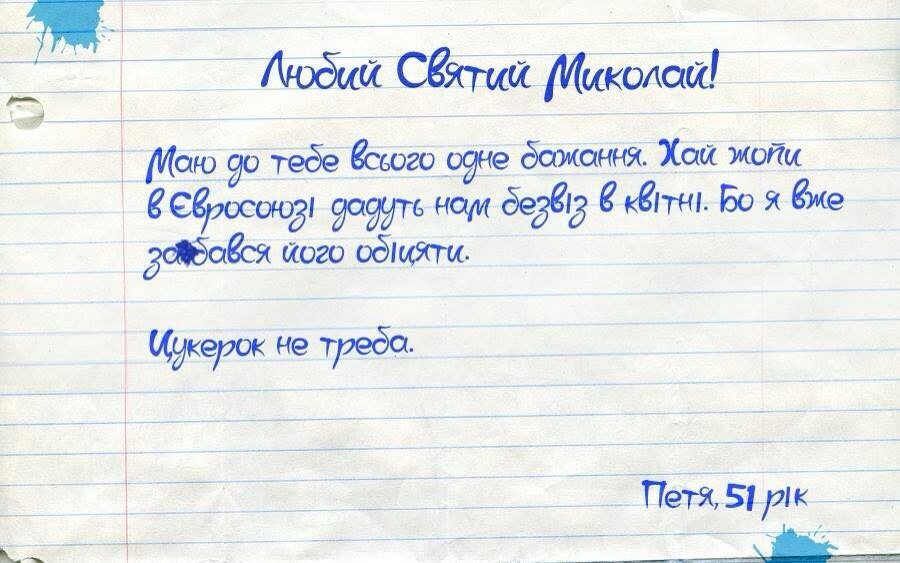 Любий Святий Миколай!
Маю до тебе всього одне бажання. Хай жопи
в Євросоюзі дадуть нам безвіз в квітні. Бо я вже
його обіцяти.
Цукерок не треба.
Петя, 51 рік